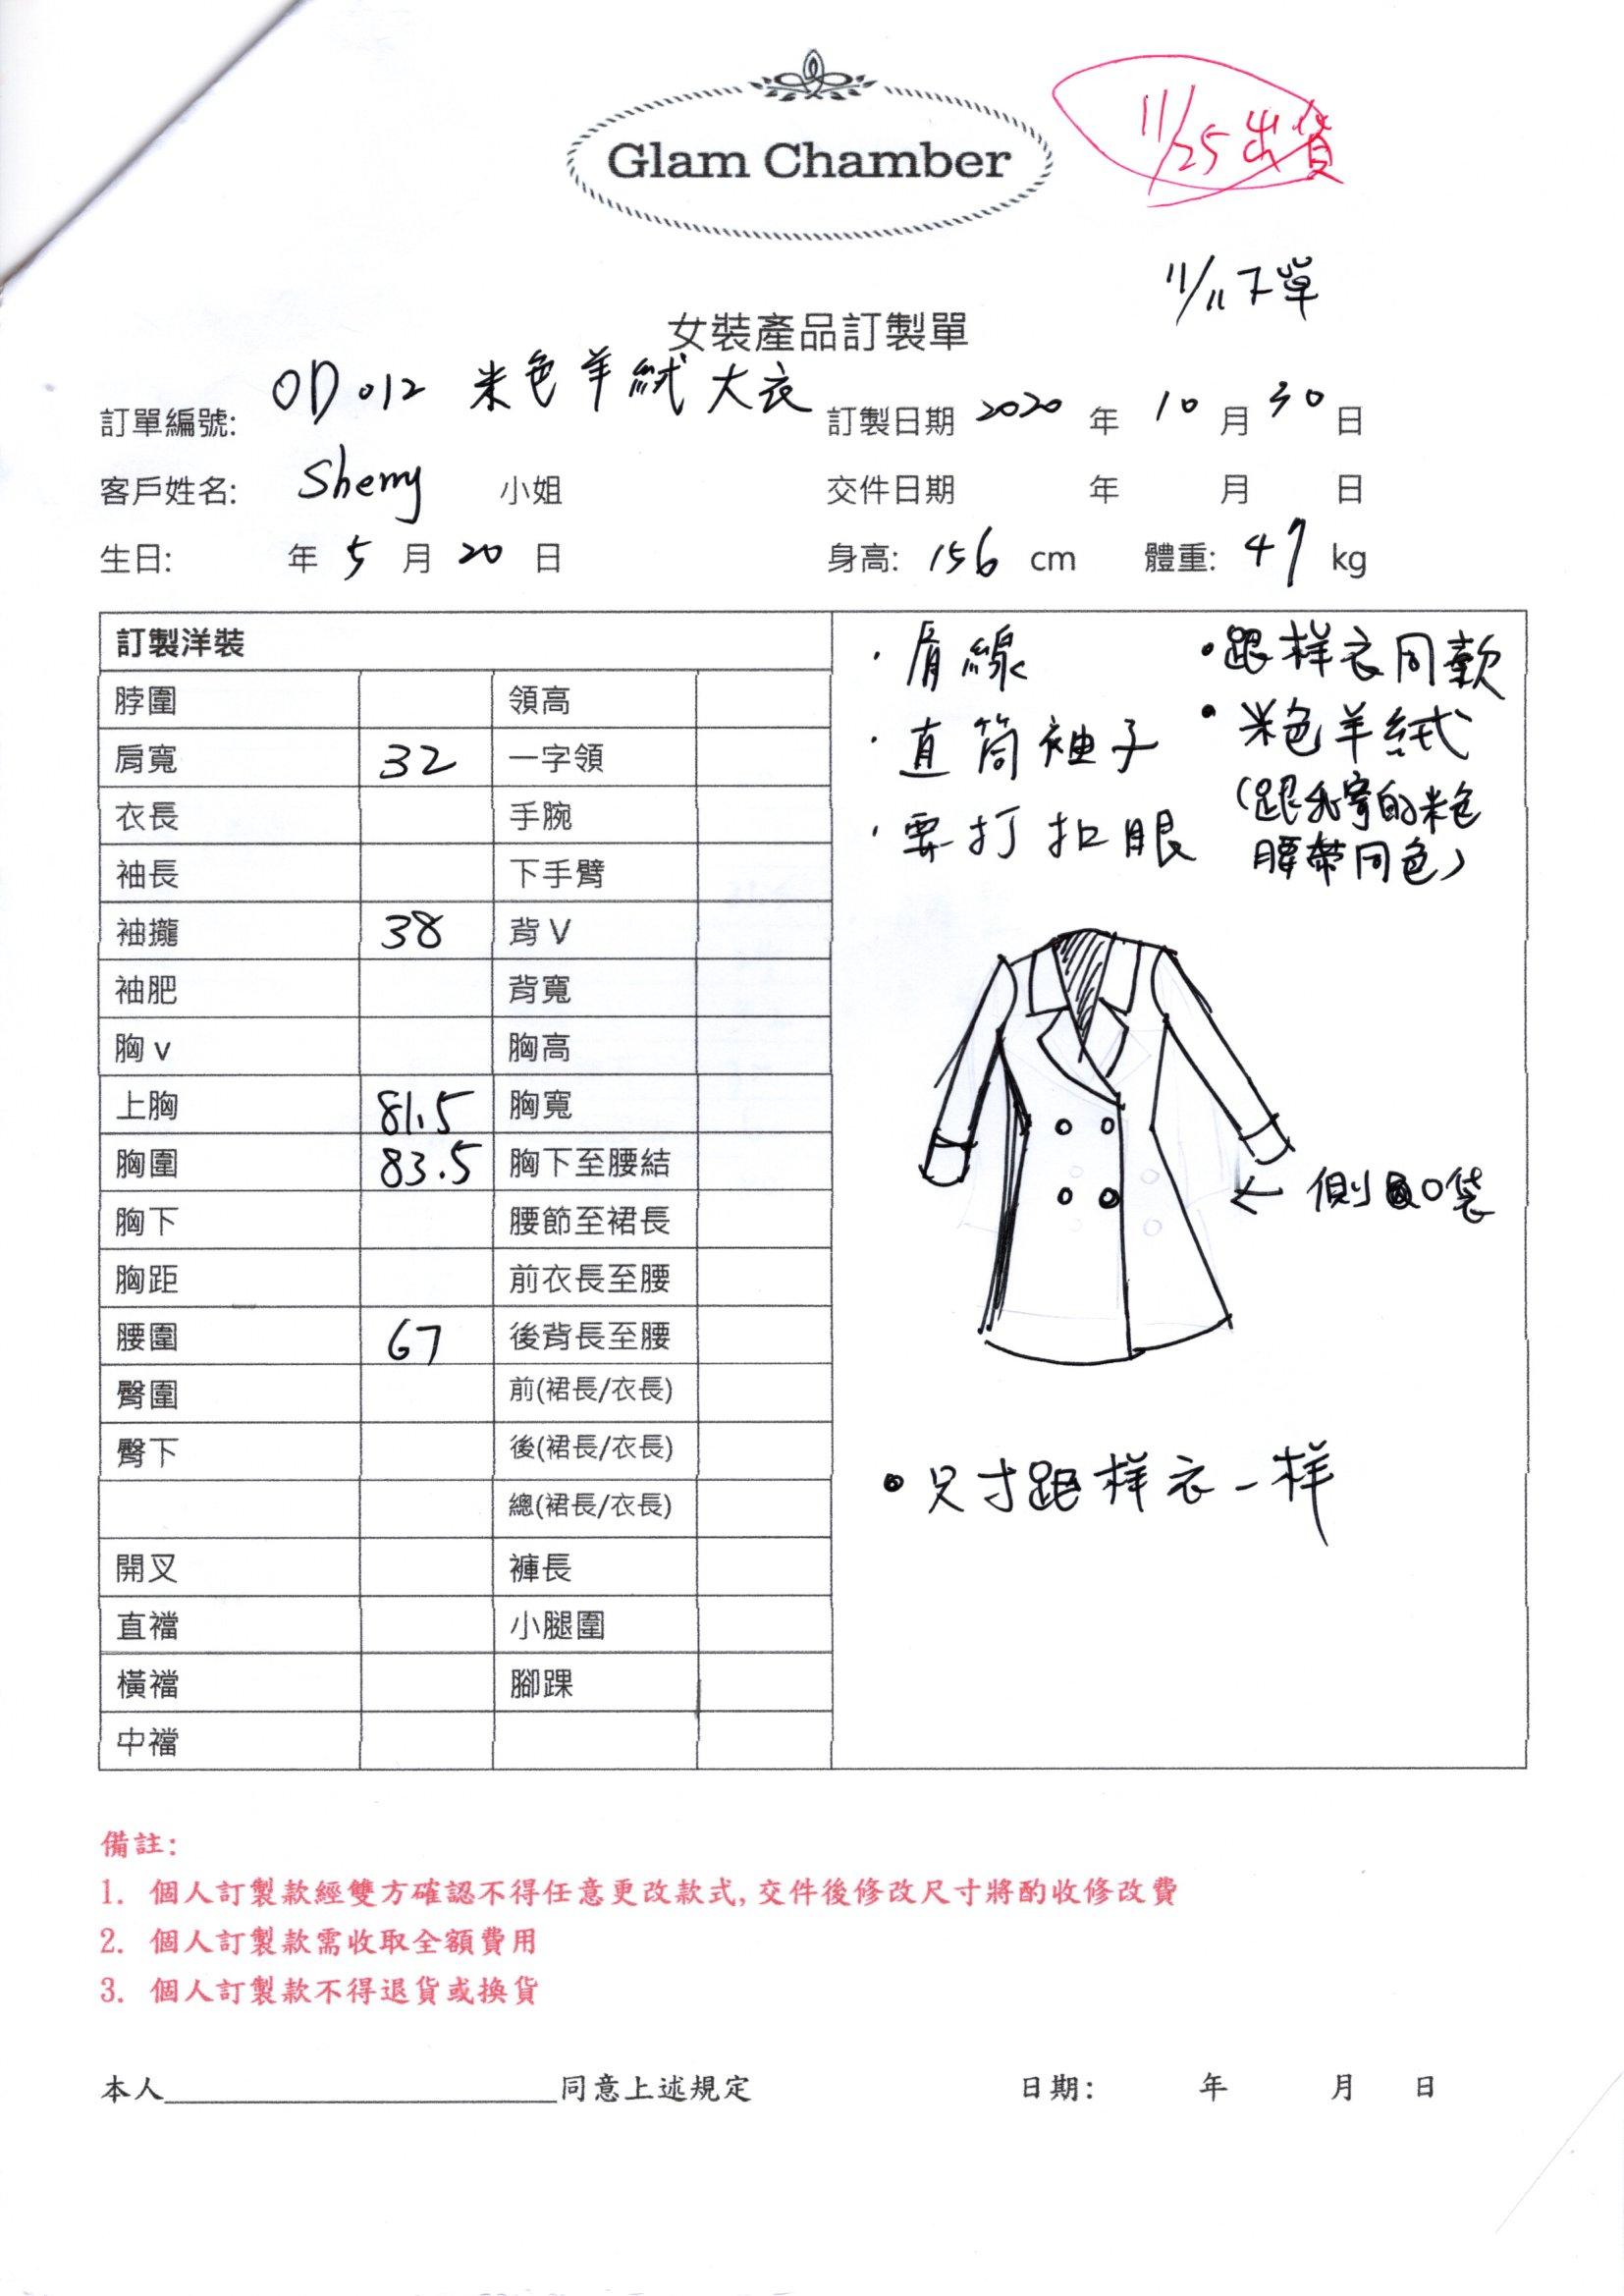 Glam Chamber
11/25出貨
11/11下單
女裝產品訂製單
訂單編號: OD012 米色羊絨大衣 訂製日期 2020 年 10 月 30 日
客戶姓名: Sherry 小姐 交件日期 年 月 日
生日: 年 5 月 20 日 身高: 156 cm 體重: 47 kg
訂製洋裝
脖圍 領高
肩寬 32 一字領
衣長 手腕
袖長 下手臂
袖攏 38 背 V
袖肥 背寬
胸 v 胸高
上胸 81.5 胸寬
胸圍 83.5 胸下至腰結
胸下 腰節至裙長
胸距 前衣長至腰
腰圍 67 後背長至腰
臀圍 前(裙長/衣長)
臀下 後(裙長/衣長)
總(裙長/衣長)
開叉 褲長
直襠 小腿圍
橫襠 腳踝
中襠
·肩線
·直筒袖子
·要打扣眼
•跟样衣同款
•米色羊絨
(跟我寄的米色
腰帶同色)
← 側口袋
•尺寸跟样衣一样
備註:
1. 個人訂製款經雙方確認不得任意更改款式, 交件後修改尺寸將酌收修改費
2. 個人訂製款需收取全額費用
3. 個人訂製款不得退貨或換貨
本人____________________同意上述規定 日期: 年 月 日